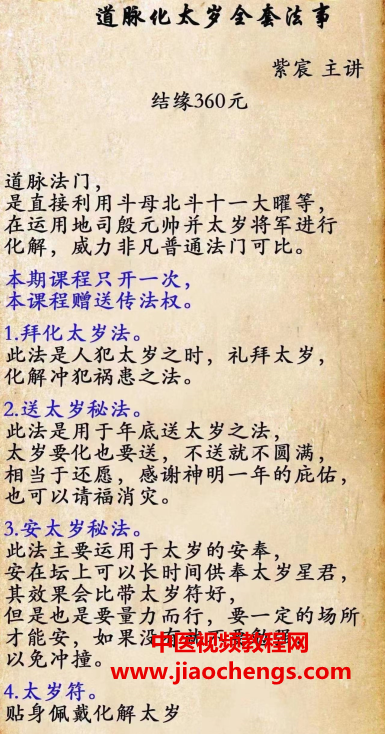 道脉化太岁全套法事
紫宸 主讲
结缘360元
道脉法门，
是直接利用斗母北斗十一大曜等，
在运用地司殷元帅并太岁将军进行
化解，威力非凡普通法门可比。
本期课程只开一次，
本课程赠送传法权。
1.拜化太岁法。
此法是人犯太岁之时，礼拜太岁，
化解冲犯祸患之法。
2.送太岁秘法。
此法是用于年底送太岁之法，
太岁要化也要送，不送就不圆满，
相当于还愿，感谢神明一年的庇佑，
也可以请福消灾。
3.安太岁秘法。
此法主要运用于太岁的安奉，
安在坛上可以长时间供奉太岁星君，
其效果会比带太岁符好，
但是也是要量力而行，要一定的场所
才能安，如果没有
中医视频教程网
以免冲撞。
www.jiaochengs.com
4.太岁符。
贴身佩戴化解太岁